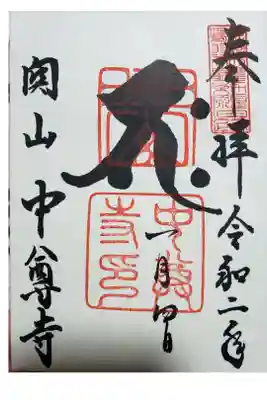 奉拝 令和二年
一月四日
中尊寺印
関山 中尊寺